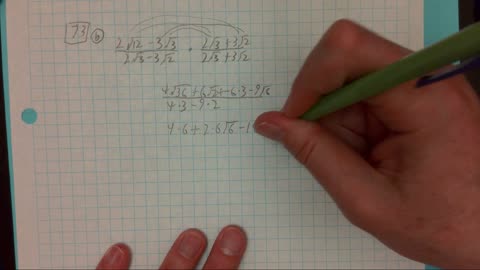 73 b 2√12 - 3√3 / 2√3 - 3√2 · 2√3 + 3√2 / 2√3 + 3√2
4√36 + 6√2 - 6·3 - 9√6
4·3 - 9·2
4·6 + 2·6√6 - 1